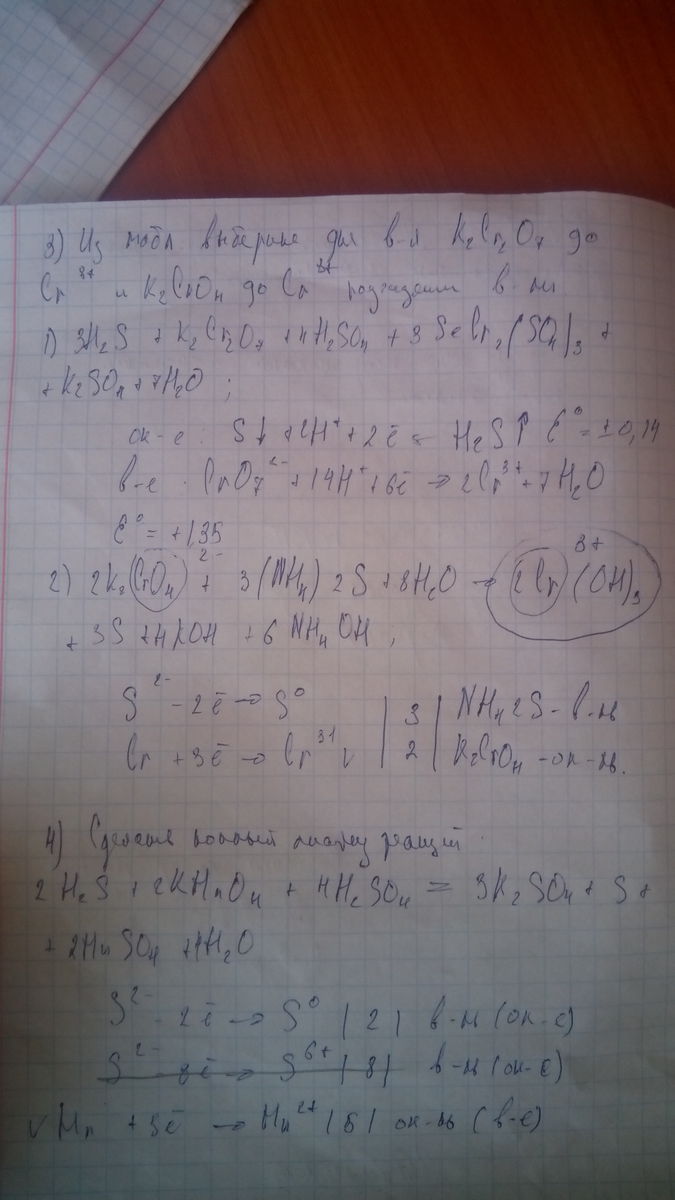 3) Из табл выберите для в-я K₂Cr₂O₇ до
Cr³⁺ и K₂CrO₄ до Cr³⁺ в-ли
1) 3H₂S + K₂Cr₂O₇ + 4H₂SO₄ + 3 S Cr₂(SO₄)₃ +
+ K₂SO₄ + 7H₂O ;
ок-е : S↓ + 2H⁺ + 2ē = H₂S↑ E° = ±0,14
в-е : CrO7²⁻ + 14H⁺ + 6ē → 2Cr³⁺ + 7H₂O
E° = +1,35
2) 2K₂(CrO₄)²⁻ + 3(NH₄) 2S + 8H₂O → 2Cr³⁺(OH)₃
+ 3S + 4KOH + 6 NH₄OH ;
S²⁻ - 2ē → S⁰ | 3 | NH₄2S - в-ль
Cr + 3ē → Cr³⁺ | 2 | K₂CrO₄ - ок-ль.
4) ионный реакций.
2 H₂S + 2KMnO₄ + 4H₂SO₄ = 3K₂SO₄ + S +
+ 2MnSO₄ + 4H₂O
S²⁻ - 2ē → S⁰ | 2 | в-ль (ок-е)
S²⁻ - 8ē → S⁶⁺ | 8 | в-ль (ок-е)
Mn + 5ē → Mn²⁺ | 5 | ок-ль (в-е)